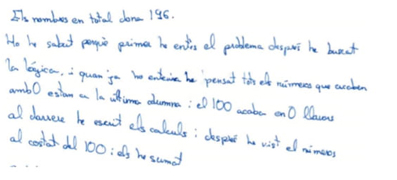 Els nombres en total dona 196.
Ho he sabut perquè primer he entès el problema després he buscat
la lògica, i quan ja ho entenia he pensat tots els números que acaben
amb 0 estan a la última columna i el 100 acaba en 0 llavors
al darrere he escrit els calculs i després he vist el números
al costat del 100 i els he sumat